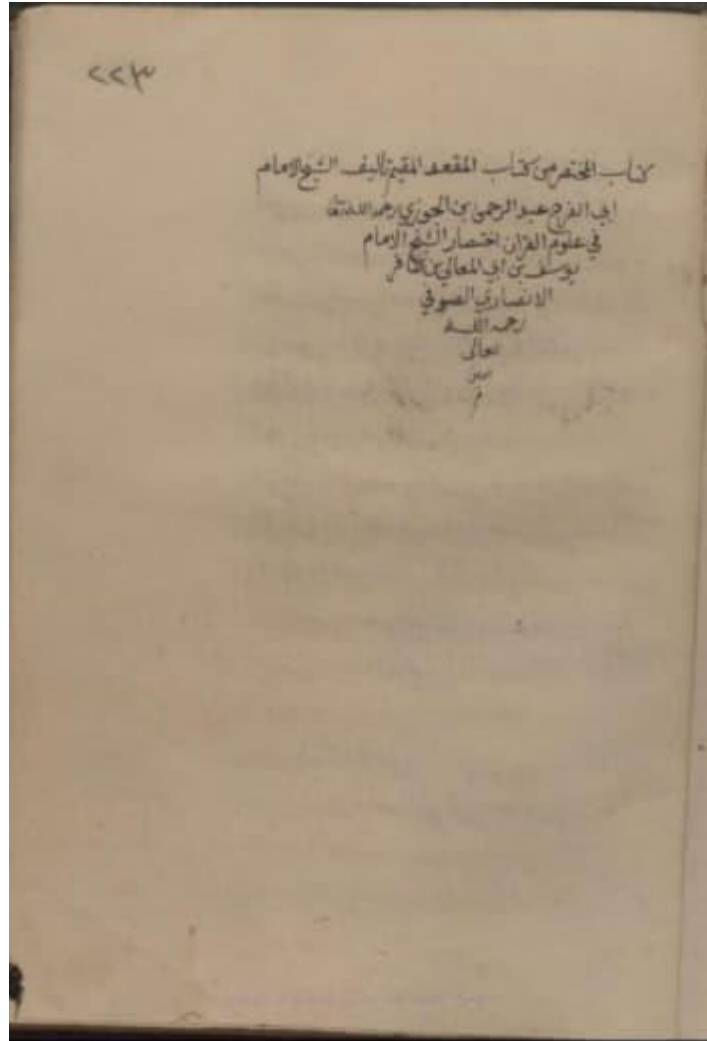 ٢٢٣
كتاب المختصر من كتاب المقعد المقيم تاليف الشيخ الامام
ابي الفرج عبد الرحمن بن الجوزي رحمه الله تعالى
في علوم القران اختصار الشيخ الامام
يوسف بن ابي المعالي بن ظافر
الانصاري الصوفي
رحمه الله
تعالى
امين
م